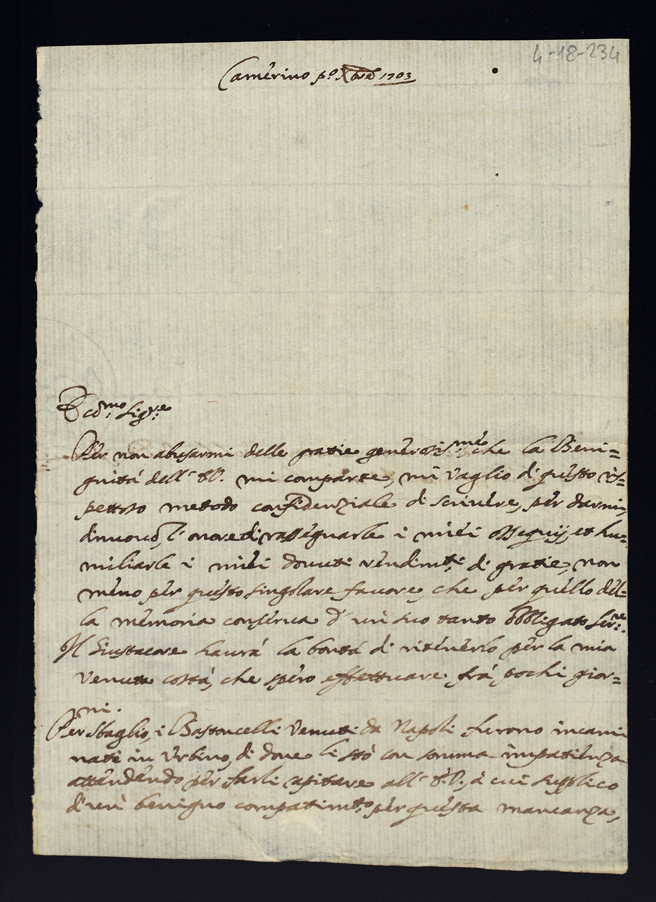 4-18-234
Camerino p.º Xbre 1703
Ecc.mo Sig.re
Per non abusarmi delle gratie generosis.me che la Beni=
gnità dell' E.V. mi comparte, mi vaglio di questo ris=
pettoso metodo confidenziale di scrivere, per darmi
di nuovo l'onore di rassegnarle i miei ossequij, et hu=
miliarle i miei dovuti rendim.ti di gratie, non
meno per questo singolare favore, che per quello del=
la memoria conserva d'un suo tanto obbligato Ser.re
Il Giustacore haurà la bontà di ritenerlo per la mia
venuta costà, che spero effettuare frà pochi gior=
ni.
Per sbaglio, i Bastoncelli venuti da Napoli furono incami
nati in Urbino, di dove li stò con somma impatienza
attendendo per farli capitare all' E.V., à cui supplico
d'un benigno compatim.to per questa mancanza,